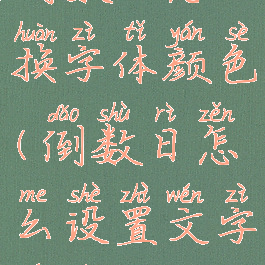 huàn zì tǐ yán sè
换字体颜色
dào shù rì zěn
(倒数日怎
me shè zhì wén zì
么设置文字